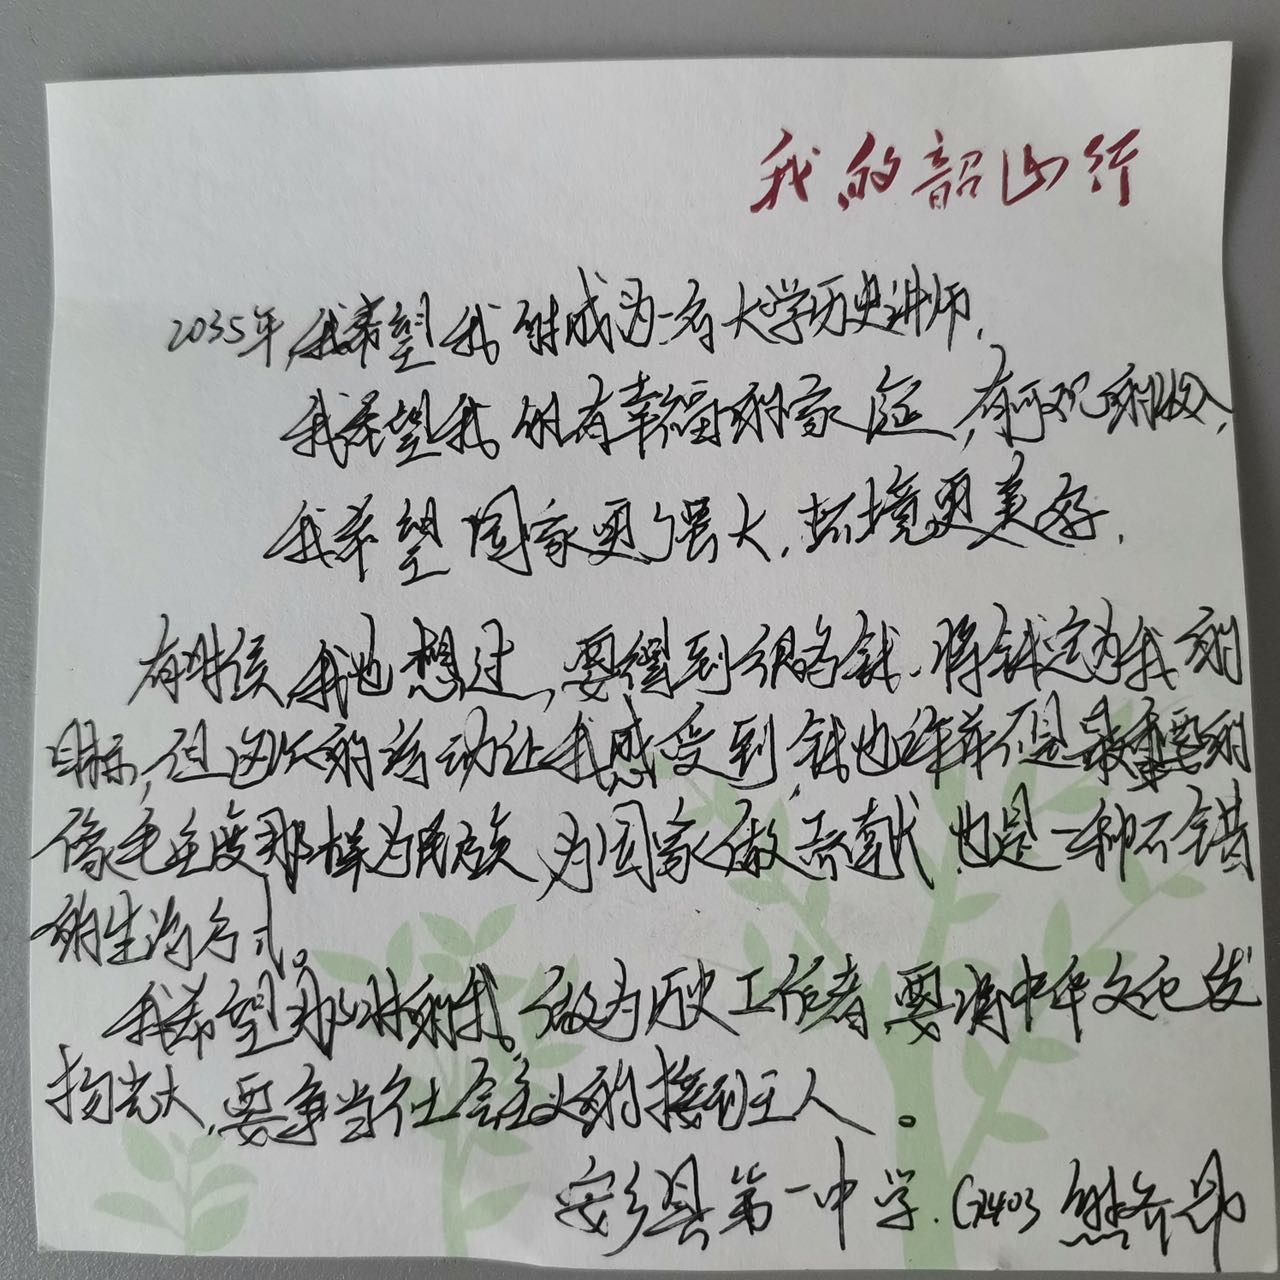 我的韶山行
2035年,我希望我能成为一名大学历史讲师,
我希望我能有幸福的家庭,有可观的收入,
我希望国家更强大,环境更美好,
有时候,我也想过,要得到很多钱,将钱定为我的
目标,但这次的活动让我感受到,钱也许并不是最重要的
像毛主席那样为民族 为国家做贡献 也是一种不错
的生活方式。
我希望那时的我。做为历史工作者 要将中华文化发
扬光大,要争当社会主义的接班人。
安乡县第一中学.G2403 熊